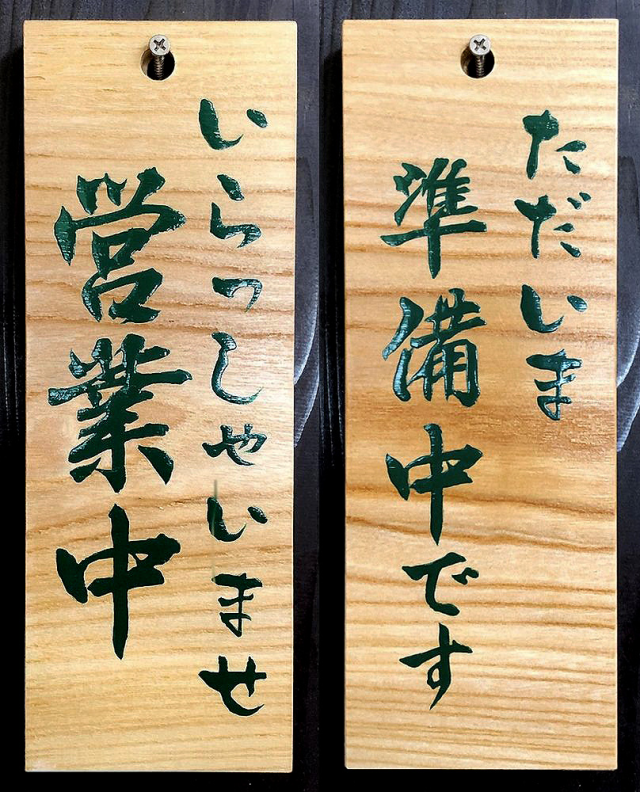 いらっしゃいませ
営業中
ただいま
準備中です